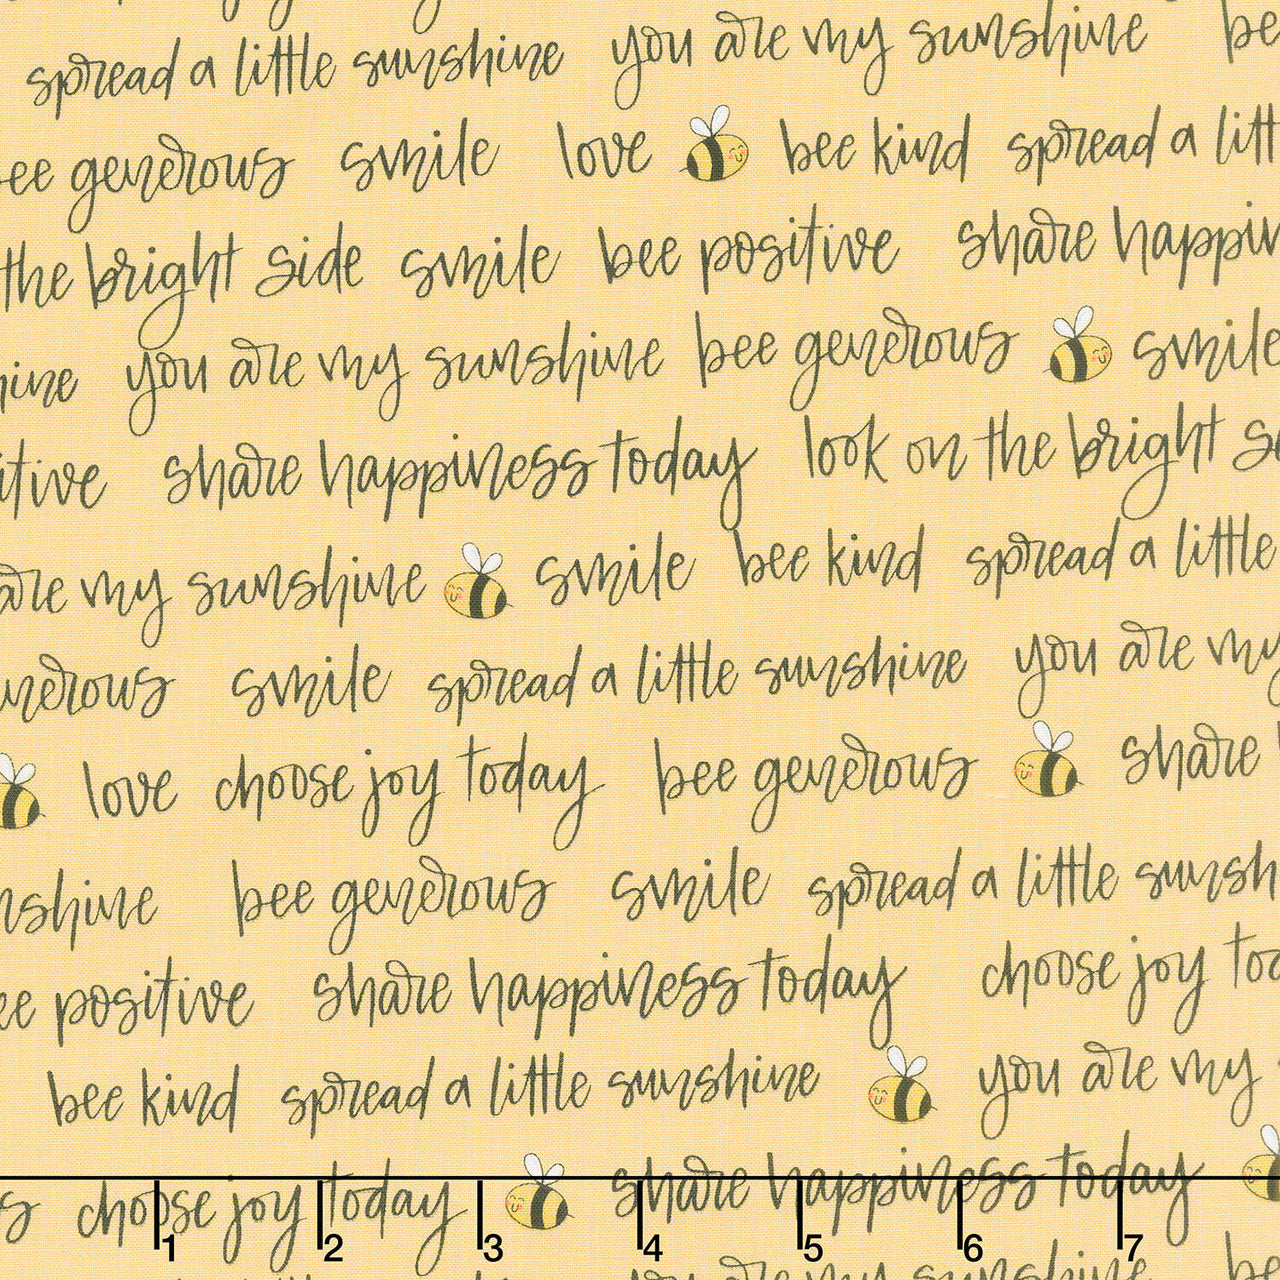 spread a little sunshine you are my sunshine be
ee generous smile love bee kind spread a litt
the bright side smile bee positive share happin
hine you are my sunshine bee generous smile
itive share happiness today look on the bright si
are my sunshine smile bee kind spread a little
nerous smile spread a little sunshine you are my
love choose joy today bee generous share h
nshine bee generous smile spread a little sunsh
ee positive share happiness today choose joy tod
bee kind spread a little sunshine you are my s
s choose joy today share happiness today
1 2 3 4 5 6 7
you are my sunshine be